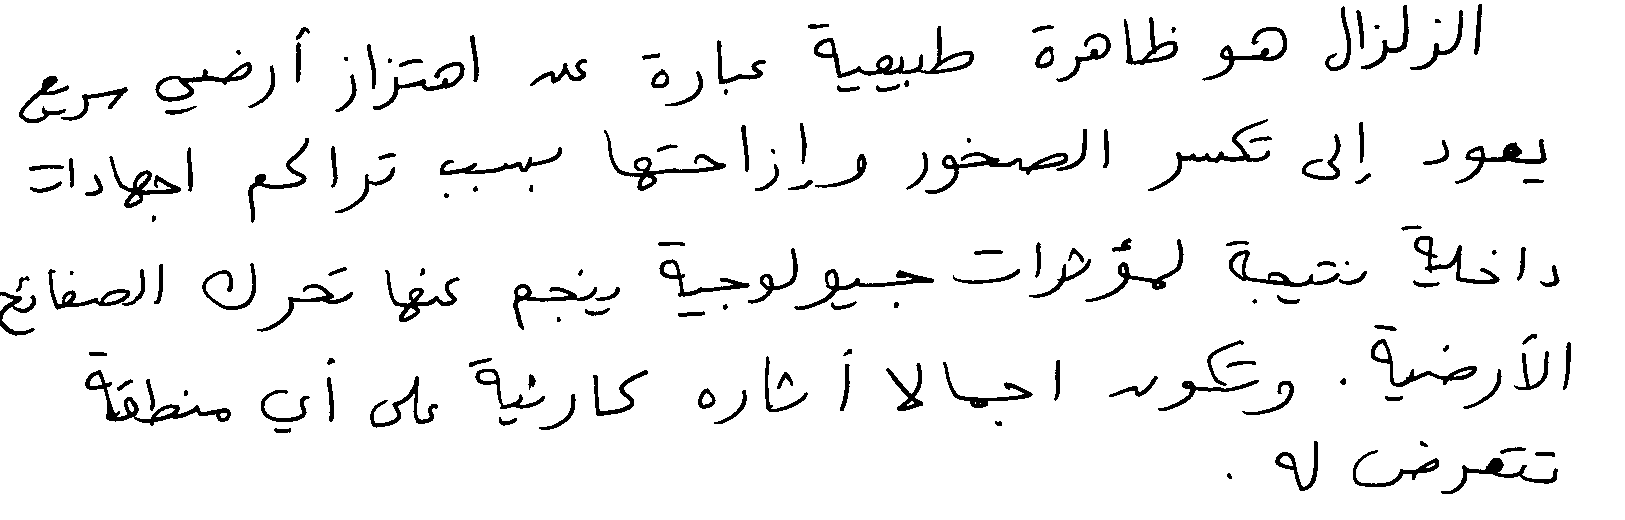 الزلزال هو ظاهرة طبيعية عبارة عن اهتزاز أرضي سريع
يعود إلى تكسر الصخور وإزاحتها بسبب تراكم اجهادات
داخلية نتيجة لمؤثرات جيولوجية ينجم عنها تحرك الصفائح
الأرضية. وتكون اجمالا أثاره كارثية على أي منطقة
تتعرض له.